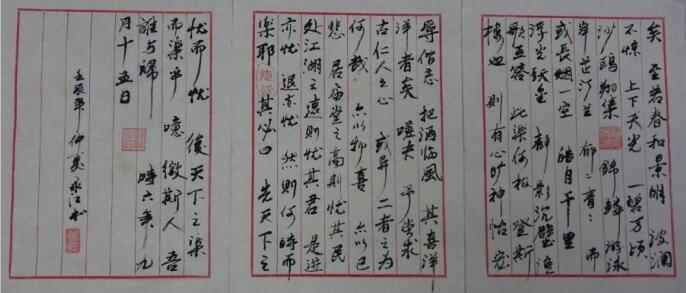 矣 至若春和景明 波澜
不惊 上下天光 一碧万顷
沙鸥翔集 錦鳞游泳
岸芷汀兰 郁々青々 而
或长烟一空 皓月千里
浮光跃金 静影沉璧 渔
歌互答 此樂何极 登斯
楼也 则有心旷神怡 宠
辱偕忘 把酒临风 其喜洋
洋者矣 嗟夫 予尝求
古仁人之心 或异二者之为
何哉 不以物喜 不以己
悲 居庙堂之高则忧其民
处江湖之远则忧其君 是进
亦忧 退亦忧 然则何時而
樂耶 其必曰 先天下之
忧而忧 後天下之樂
而樂乎 噫 微斯人 吾
谁与归 時六年九
月十五日
壬辰年 仲夏 永江书